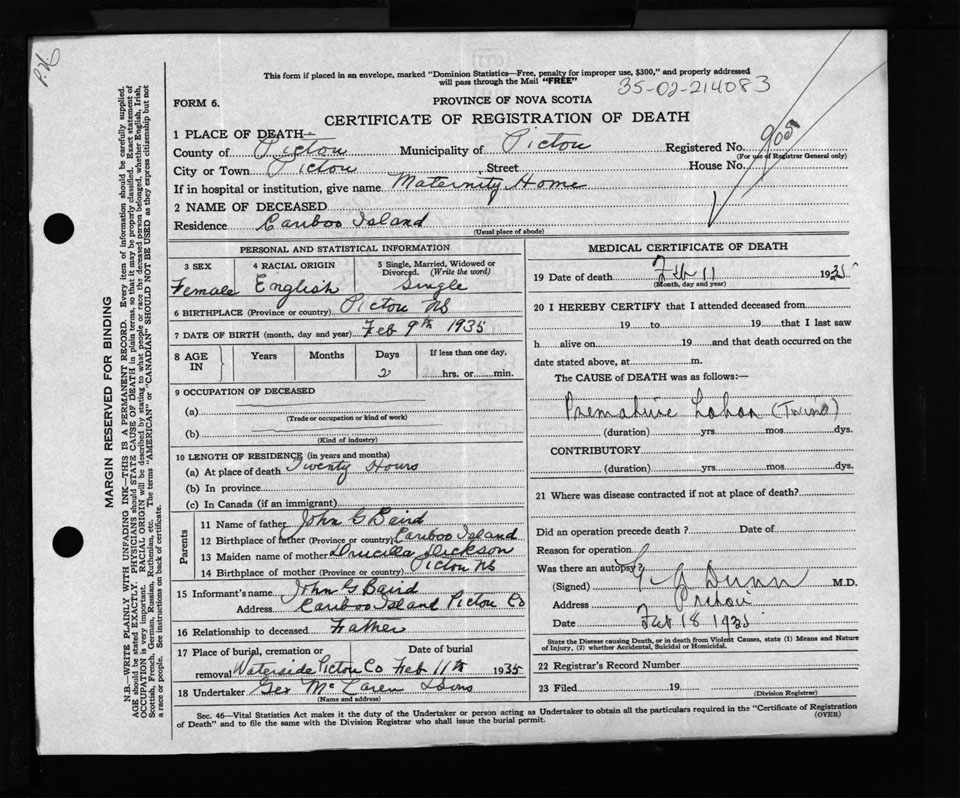 P.26
This form if placed in an envelope, marked "Dominion Statistics—Free, penalty for improper use, $300," and properly addressed
will pass through the Mail "FREE"
35-02-214083
FORM 6.
PROVINCE OF NOVA SCOTIA
CERTIFICATE OF REGISTRATION OF DEATH
1 PLACE OF DEATH—
County of Pictou Municipality of Pictou Registered No.
(For use of Registrar General only)
City or Town Pictou , Street House No.
If in hospital or institution, give name Maternity Home
2 NAME OF DECEASED
Residence Cariboo Island
(Usual place of abode)
PERSONAL AND STATISTICAL INFORMATION
3 SEX 4 RACIAL ORIGIN 5 Single, Married, Widowed or
Divorced. (Write the word)
Female English Single
6 BIRTHPLACE (Province or country) Pictou NS
7 DATE OF BIRTH (month, day and year) Feb 9th 1935
8 AGE IN Years Months Days If less than one day,
2 hrs. or min.
9 OCCUPATION OF DECEASED
(a)
(Trade or occupation or kind of work)
(b)
(Kind of industry)
10 LENGTH OF RESIDENCE (in years and months)
(a) At place of death Twenty Hours
(b) In province
(c) In Canada (if an immigrant)
Parents
11 Name of father John G Baird
12 Birthplace of father (Province or country) Cariboo Island
13 Maiden name of mother Drucilla Dickson
14 Birthplace of mother (Province or country) Pictou NS
15 Informant's name John G Baird
Address Cariboo Island Pictou Co
16 Relationship to deceased Father
17 Place of burial, cremation or Date of burial
removal Waterside Pictou Co Feb 11th 1935
18 Undertaker Geo McLaren & Sons
(Name and address)
MEDICAL CERTIFICATE OF DEATH
19 Date of death Feb 11 1935
(Month, day and year)
20 I HEREBY CERTIFY that I attended deceased from
19 to 19 that I last saw
h alive on 19 and that death occurred on the
date stated above, at m.
The CAUSE of DEATH was as follows:—
Premature Labor (Twins)
(duration) yrs. mos. dys.
CONTRIBUTORY
(duration) yrs. mos. dys.
21 Where was disease contracted if not at place of death?
Did an operation precede death ? Date of
Reason for operation
Was there an autopsy?
(Signed) G A Dunn M.D.
Address Pictou
Date Feb 18 1935
State the Disease causing Death, or in death from Violent Causes, state (1) Means and Nature
of Injury, (2) whether Accidental, Suicidal or Homicidal.
22 Registrar's Record Number
23 Filed 19
(Division Registrar)
Sec. 46—Vital Statistics Act makes it the duty of the Undertaker or person acting as Undertaker to obtain all the particulars required in the "Certificate of Registration
of Death" and to file the same with the Division Registrar who shall issue the burial permit. (OVER)
MARGIN RESERVED FOR BINDING
N.B.—WRITE PLAINLY WITH UNFADING INK—THIS IS A PERMANENT RECORD. Every item of information should be carefully supplied.
AGE should be stated EXACTLY. PHYSICIANS should STATE CAUSE OF DEATH in plain terms, so that it may be properly classified. Exact statement of
OCCUPATION is very important. RACIAL ORIGIN will be described by stating to what people or race the deceased person belonged, whether English, Irish,
Scottish, French, German, Russian, Ruthenian, etc. The terms "AMERICAN" or "CANADIAN" SHOULD NOT BE USED as they express citizenship but not
a race or people. See instructions on back of certificate.